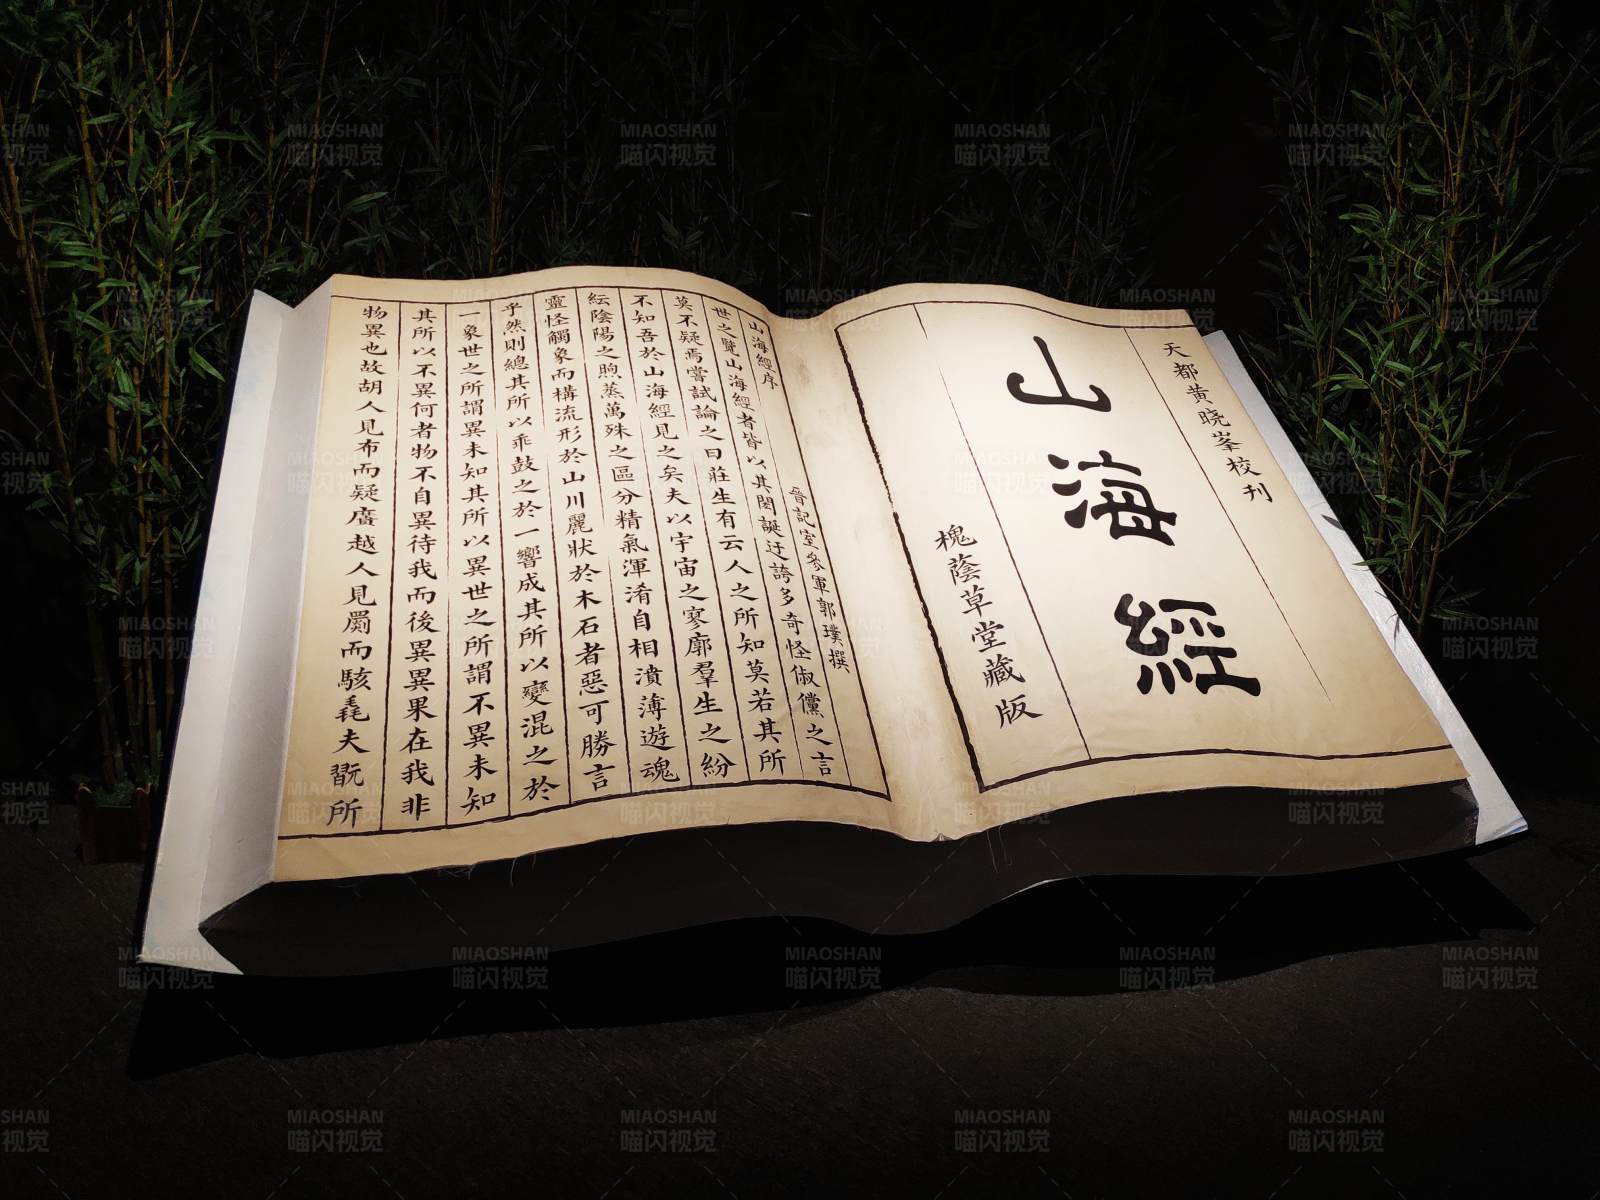 天都黄晓峯校刊
山海經
槐蔭草堂藏版
山海經序
晉記室參軍郭璞撰
世之覽山海經者皆以其閎誕迂誇多奇怪俶儻之言
莫不疑焉嘗試論之曰莊生有云人之所知莫若其所
不知吾於山海經見之矣夫以宇宙之寥廓羣生之紛
紜陰陽之煦蒸萬殊之區分精氣渾淆自相濆薄遊魂
靈怪觸象而構流形於山川麗狀於木石者惡可勝言
乎然則總其所以乖鼓之於一響成其所以變混之於
一象世之所謂異未知其所以異世之所謂不異未知
其所以不異何者物不自異待我而後異異果在我非
物異也故胡人見布而疑黂越人見罽而駭毳夫翫所
MIAOSHAN
喵闪视觉